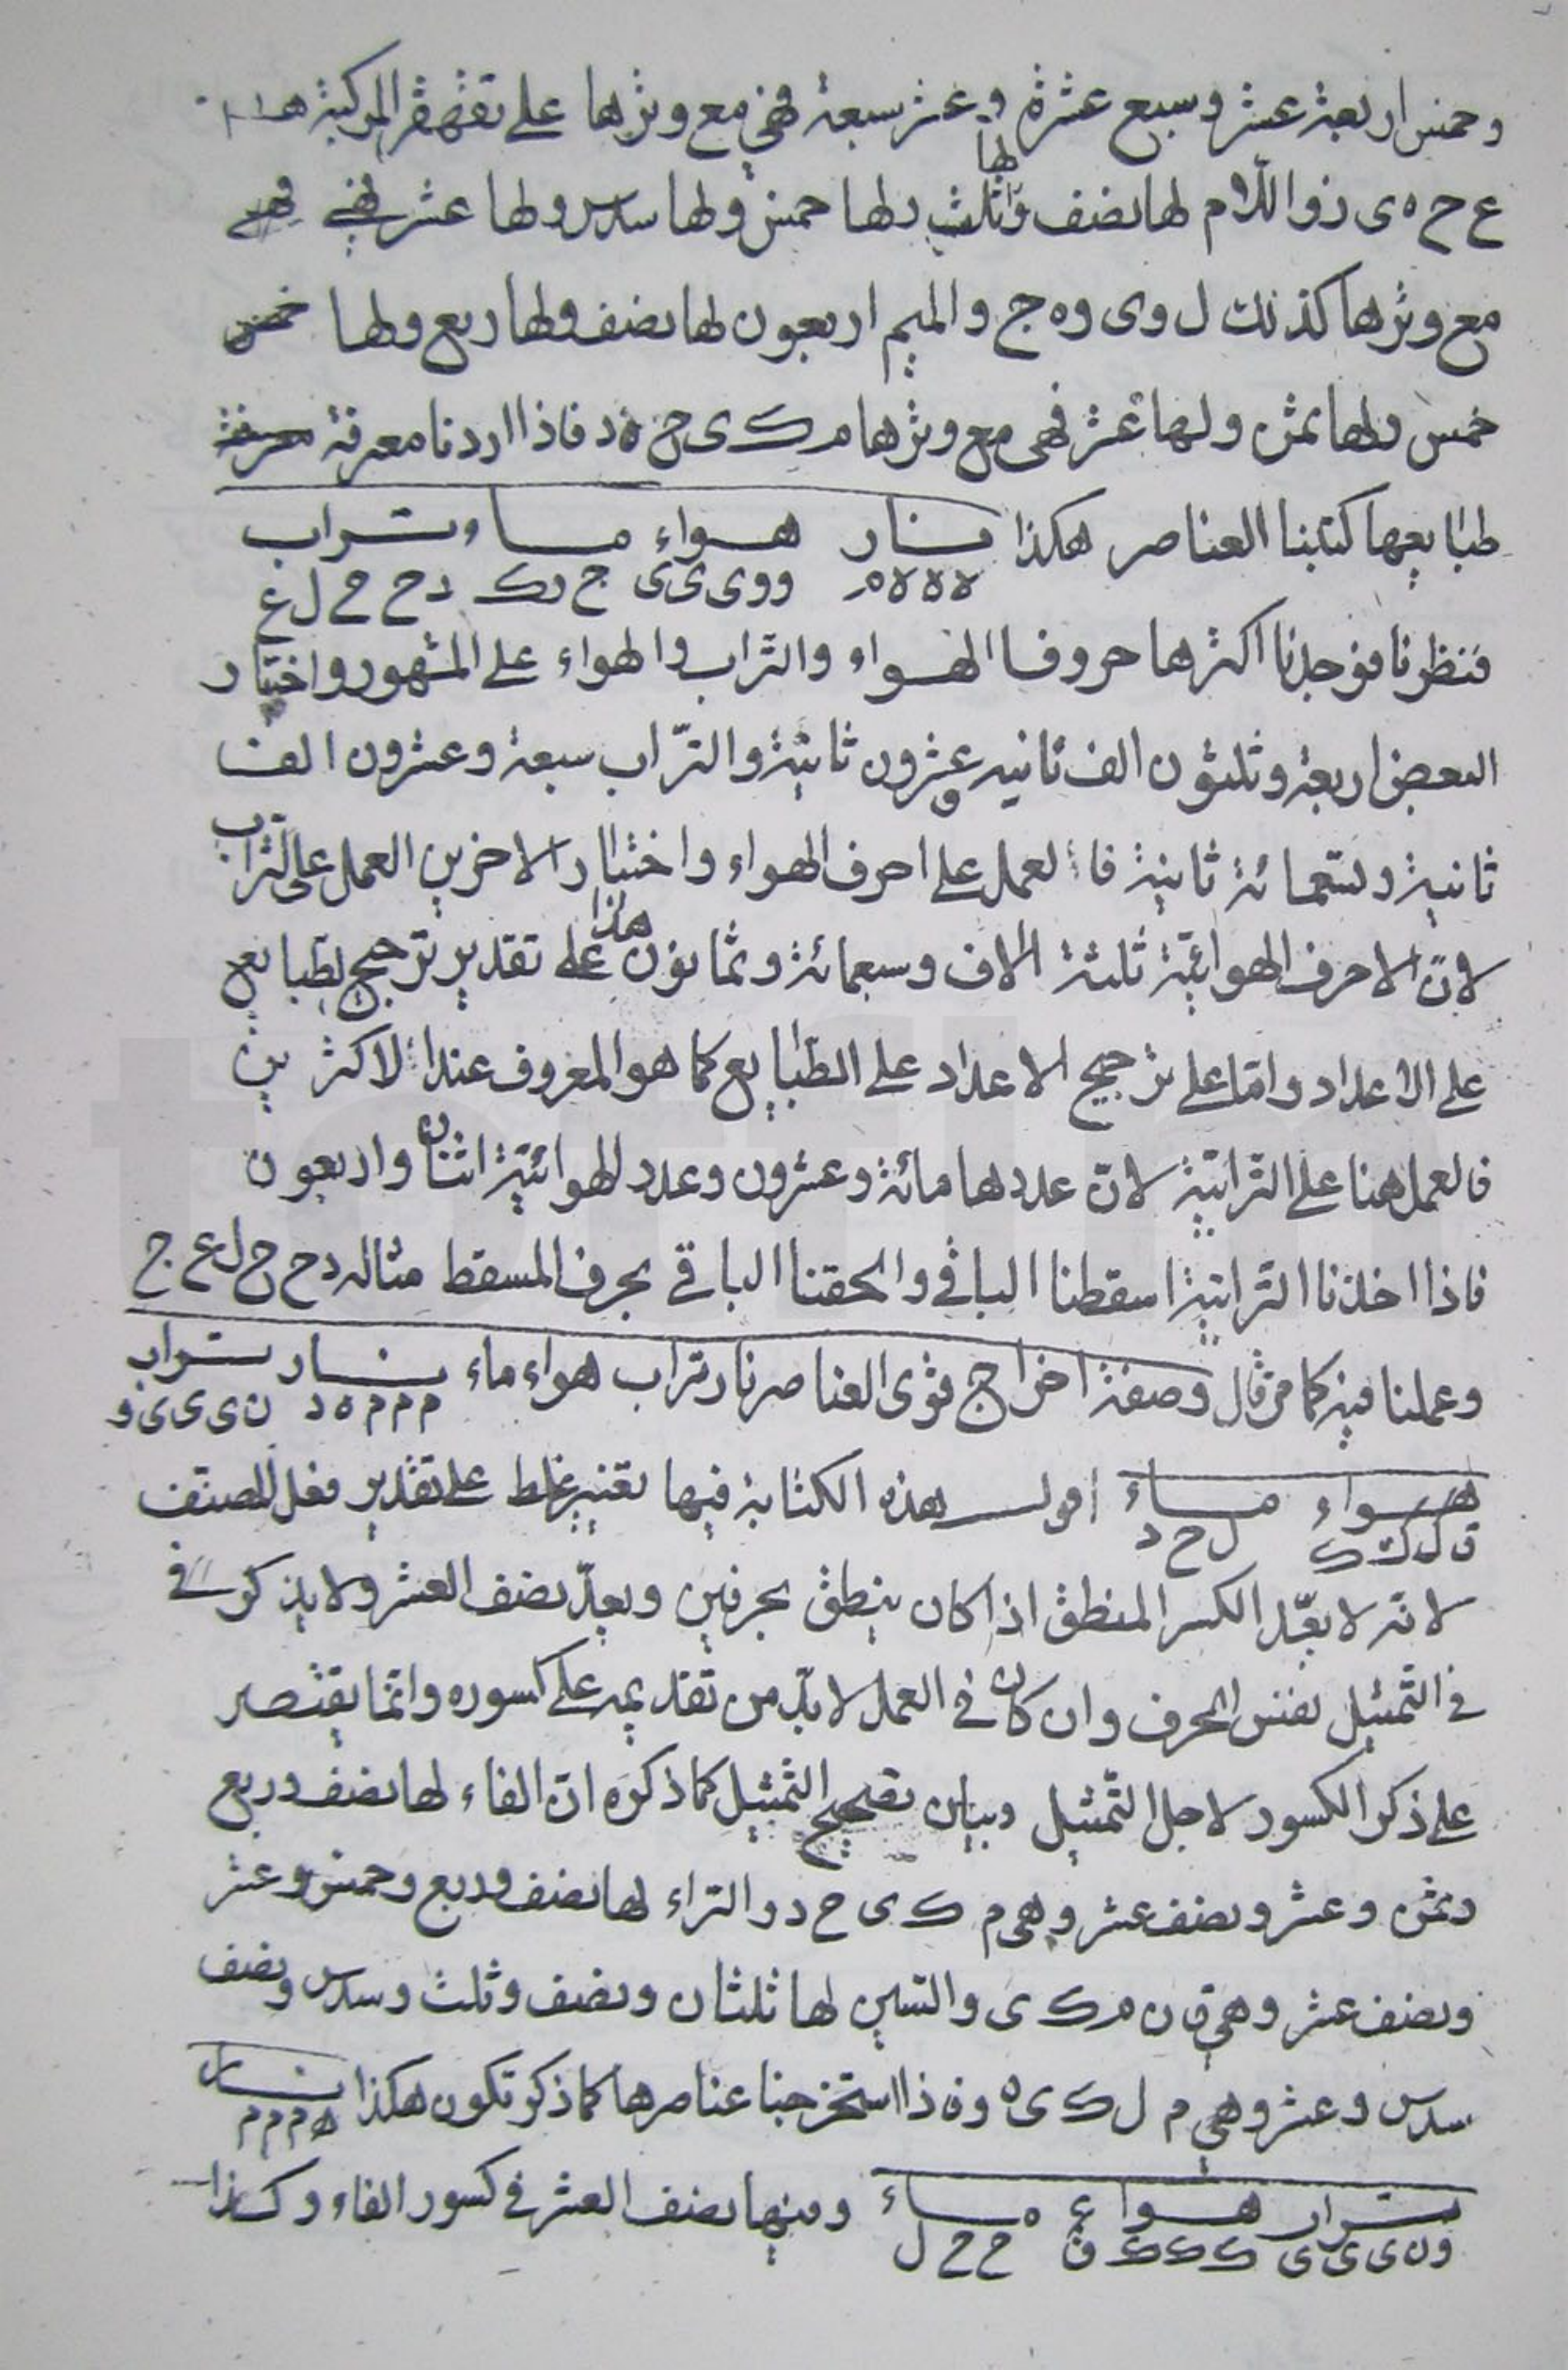 وخمس اربعة عشر وسبع عشرة وعشر سبعة فهي مع وترها على تقهقر المركبة هـ ا
ع ح ه ى ز واللام لها نصف ولها ثلث ولها خمس ولها سدس ولها عشر فهي
مع وترها كذلك ل و ى و ه ج والميم اربعون لها نصف ولها ربع ولها خمس
خمس ولها ثمن ولها عشر فهى مع وترها م ك ى ح ة د فاذا اردنا معرفة
طبايعها كتبنا العناصر هكذا نار هواء ماء وتراب
ه ه ه م و و ى ى ى ج د ك د ح ح ل ع
فنظرنا فوجدنا اكثرها حروفا الهواء والتراب والهواء على المشهور واختيار
البعض اربعة وثلثون الف ثانيه وعشرون ثانية والتراب سبعة وعشرون الف
ثانية وتسعمائة ثانية فالعمل على احرف الهواء واختيار الاخرين العمل على التراب
لانّ الاحرف الهوائيّة ثلثة الاف وسبعمائة وثمانون هذا على تقدير ترجيح الطبايع
على الاعداد وامّا على ترجيح الاعداد على الطّبايع كما هو المعروف عند الاكثرين
فالعمل هنا على التّرابيّة لانّ عددها مائة وعشرون وعدد الهوائيّة اثنان واربعون
فاذا اخذنا التّرابيّة اسقطنا الباقي والحقنا الباقي بحرف المسقط مثاله د ح ح ل ع ج
وعملنا فيه كما مرّ قال وصفة اخراج قوى العناصر نار تراب هواء ماء نار تراب
م م م ه د ن ى ى ى و
هواء ماء اقول هذه الكتابة فيها تغيير غلط على تقدير فعل المصنّف
ق ك ك ك ل ح د
لانّه لا يعّد الكسر المنطق اذا كان ينطق بحرفين ويعدّ نصف العشر ولا يذكر في
في التّمثيل نفس الحرف وان كان في العمل لا بدّ من تقديمه على كسوره وانّما يقتصر
على ذكر الكسور لاجل التّمثيل وبيان تصحيح التّمثيل كما ذكره انّ الفاء لها نصف وربع
وثمن وعشر ونصف عشر وهى م ك ى ح د والرّاء لها نصف وربع وخمس وعشر
ونصف عشر وهي ق ن م ك ى والشّين لها ثلثان ونصف وثلث وسدس ونصف
سدس وعشر وهي م ل ك ى ه وفاذا استخرجنا عناصرها كما ذكر تكون هكذا نار
ه م م م
تراب هواء ماء ومنها نصف العشر في كسور الفاء وكذا
و ن ى ى ى ك ك ك ق ح ح ل